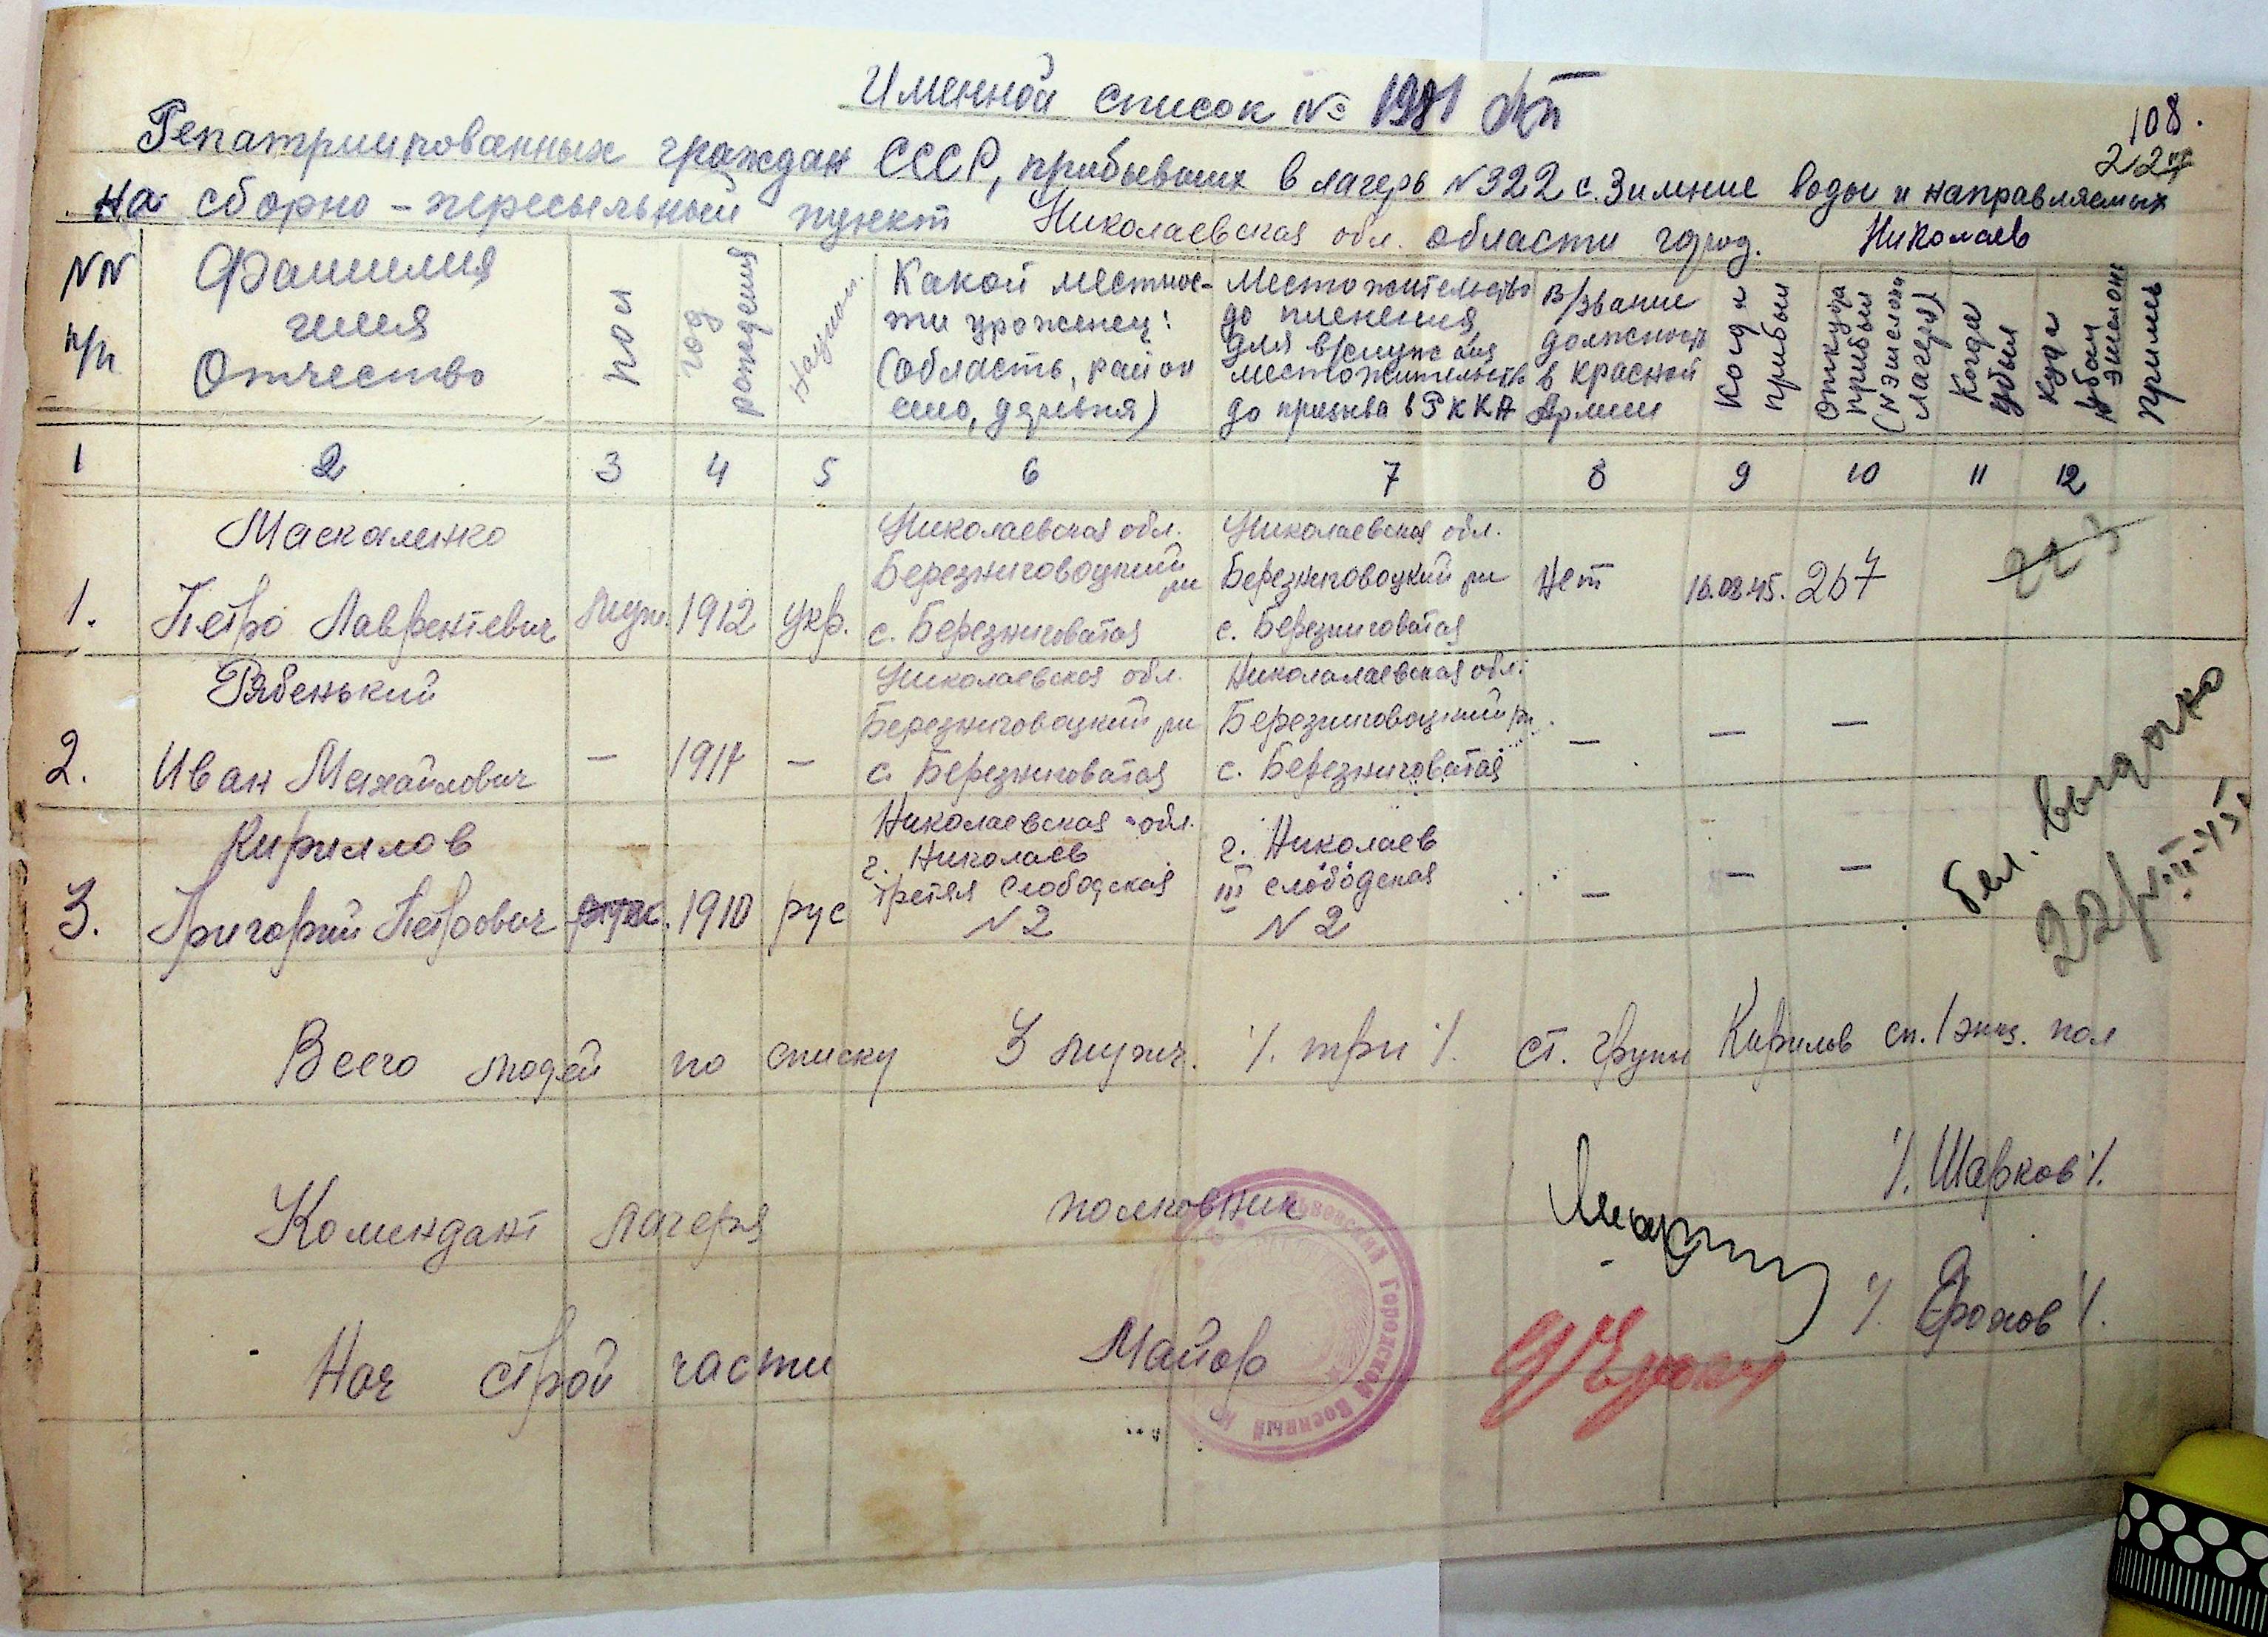 Именной список № 1981
108.
227
Репатриированных граждан СССР, прибывших в лагерь №322 с. Зимние воды и направляемых
на сборно-пересыльный пункт Николаевская обл. области город. Николаев
NN п/п
Фамилия имя Отчество
пол
год рождения
Национ.
Какой местнос-
ти уроженец:
(область, район
село, деревня)
Местожительство
до пленения,
для в/служ
местожительств
до призыва в РККА
в/звание
должность
в красной
Армии
Когда прибыл
Откуда прибыл (№ эшелона лагеря)
Когда убыл
Куда убыл № эшелона
Примеч
1 2 3 4 5 6 7 8 9 10 11 12
Маскаленко
1. Петро Лаврентевич муж. 1912 укр.
Николаевская обл.
Березниговоцкий рн
с. Березниговатая
Николаевская обл.
Березниговоцкий рн
с. Березниговатая
Нет 16.08.45. 267
223
Рябенький
2. Иван Михайлович — 1917 —
Николаевская обл.
Березниговоцкий рн
с. Березниговатая
Николалаевская обл.
Березниговоцкий рн.
с. Березниговатая
— — —
Кириллов
3. Григорий Петрович муж. 1910 рус
Николаевская обл.
г. Николаев
третяя Слободская
N 2
г. Николаев
III слободская
N 2
— — —
выдано
22/VIII-45
Всего людей по списку 3 мужч. /. три /. ст. групы Кирилов сп. 1 экз. пол
Комендант лагеря полковник /. Шарков /.
Нач строй части Майор /. Ерохов /.
Львовский Городской Военный